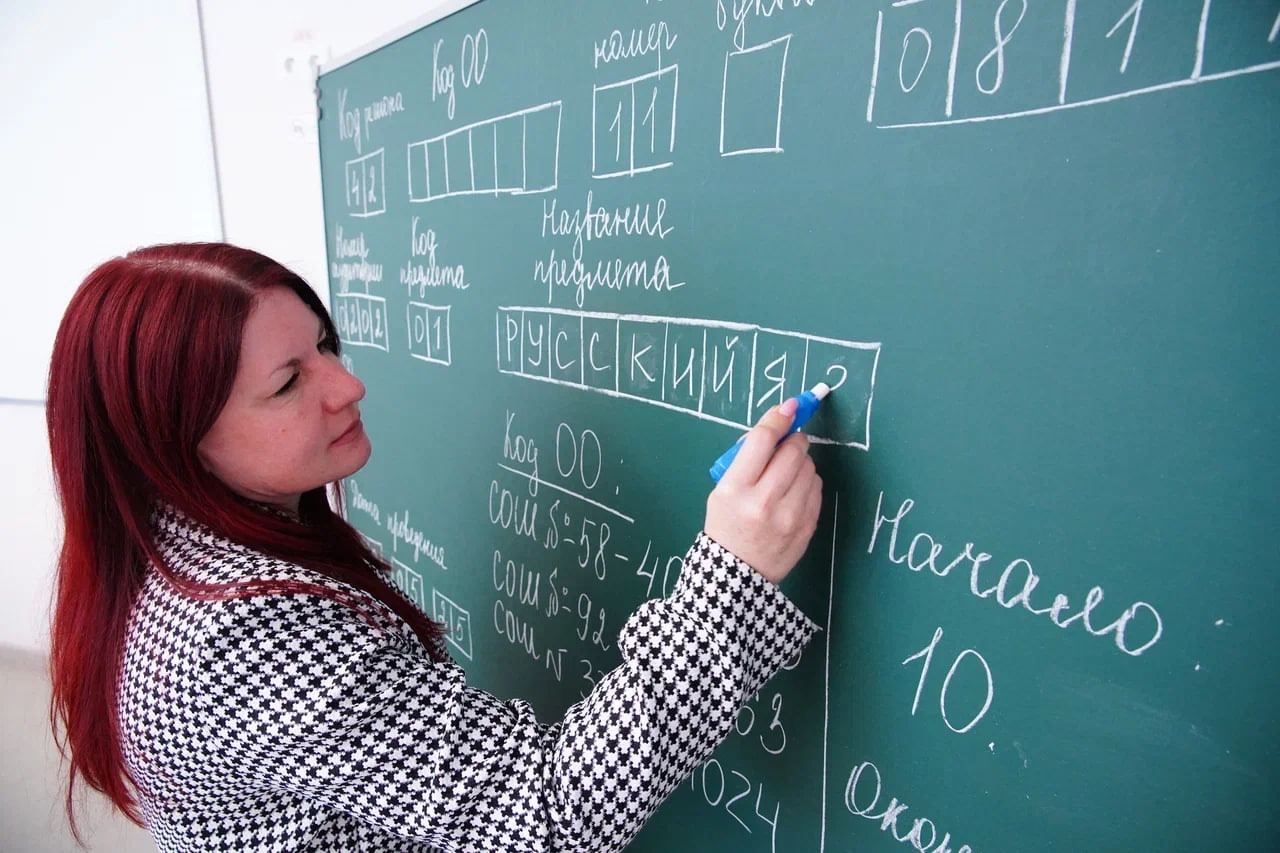 Код региона
42
Код ОО
номер
11
081
Номер аудитории
0202
Код предмета
01
Название предмета
РУССКИЙ Я
Код ОО:
СОШ №-58-40
СОШ №-92
СОШ
03
1024
Дата проведения
05 25
Начало:
10.